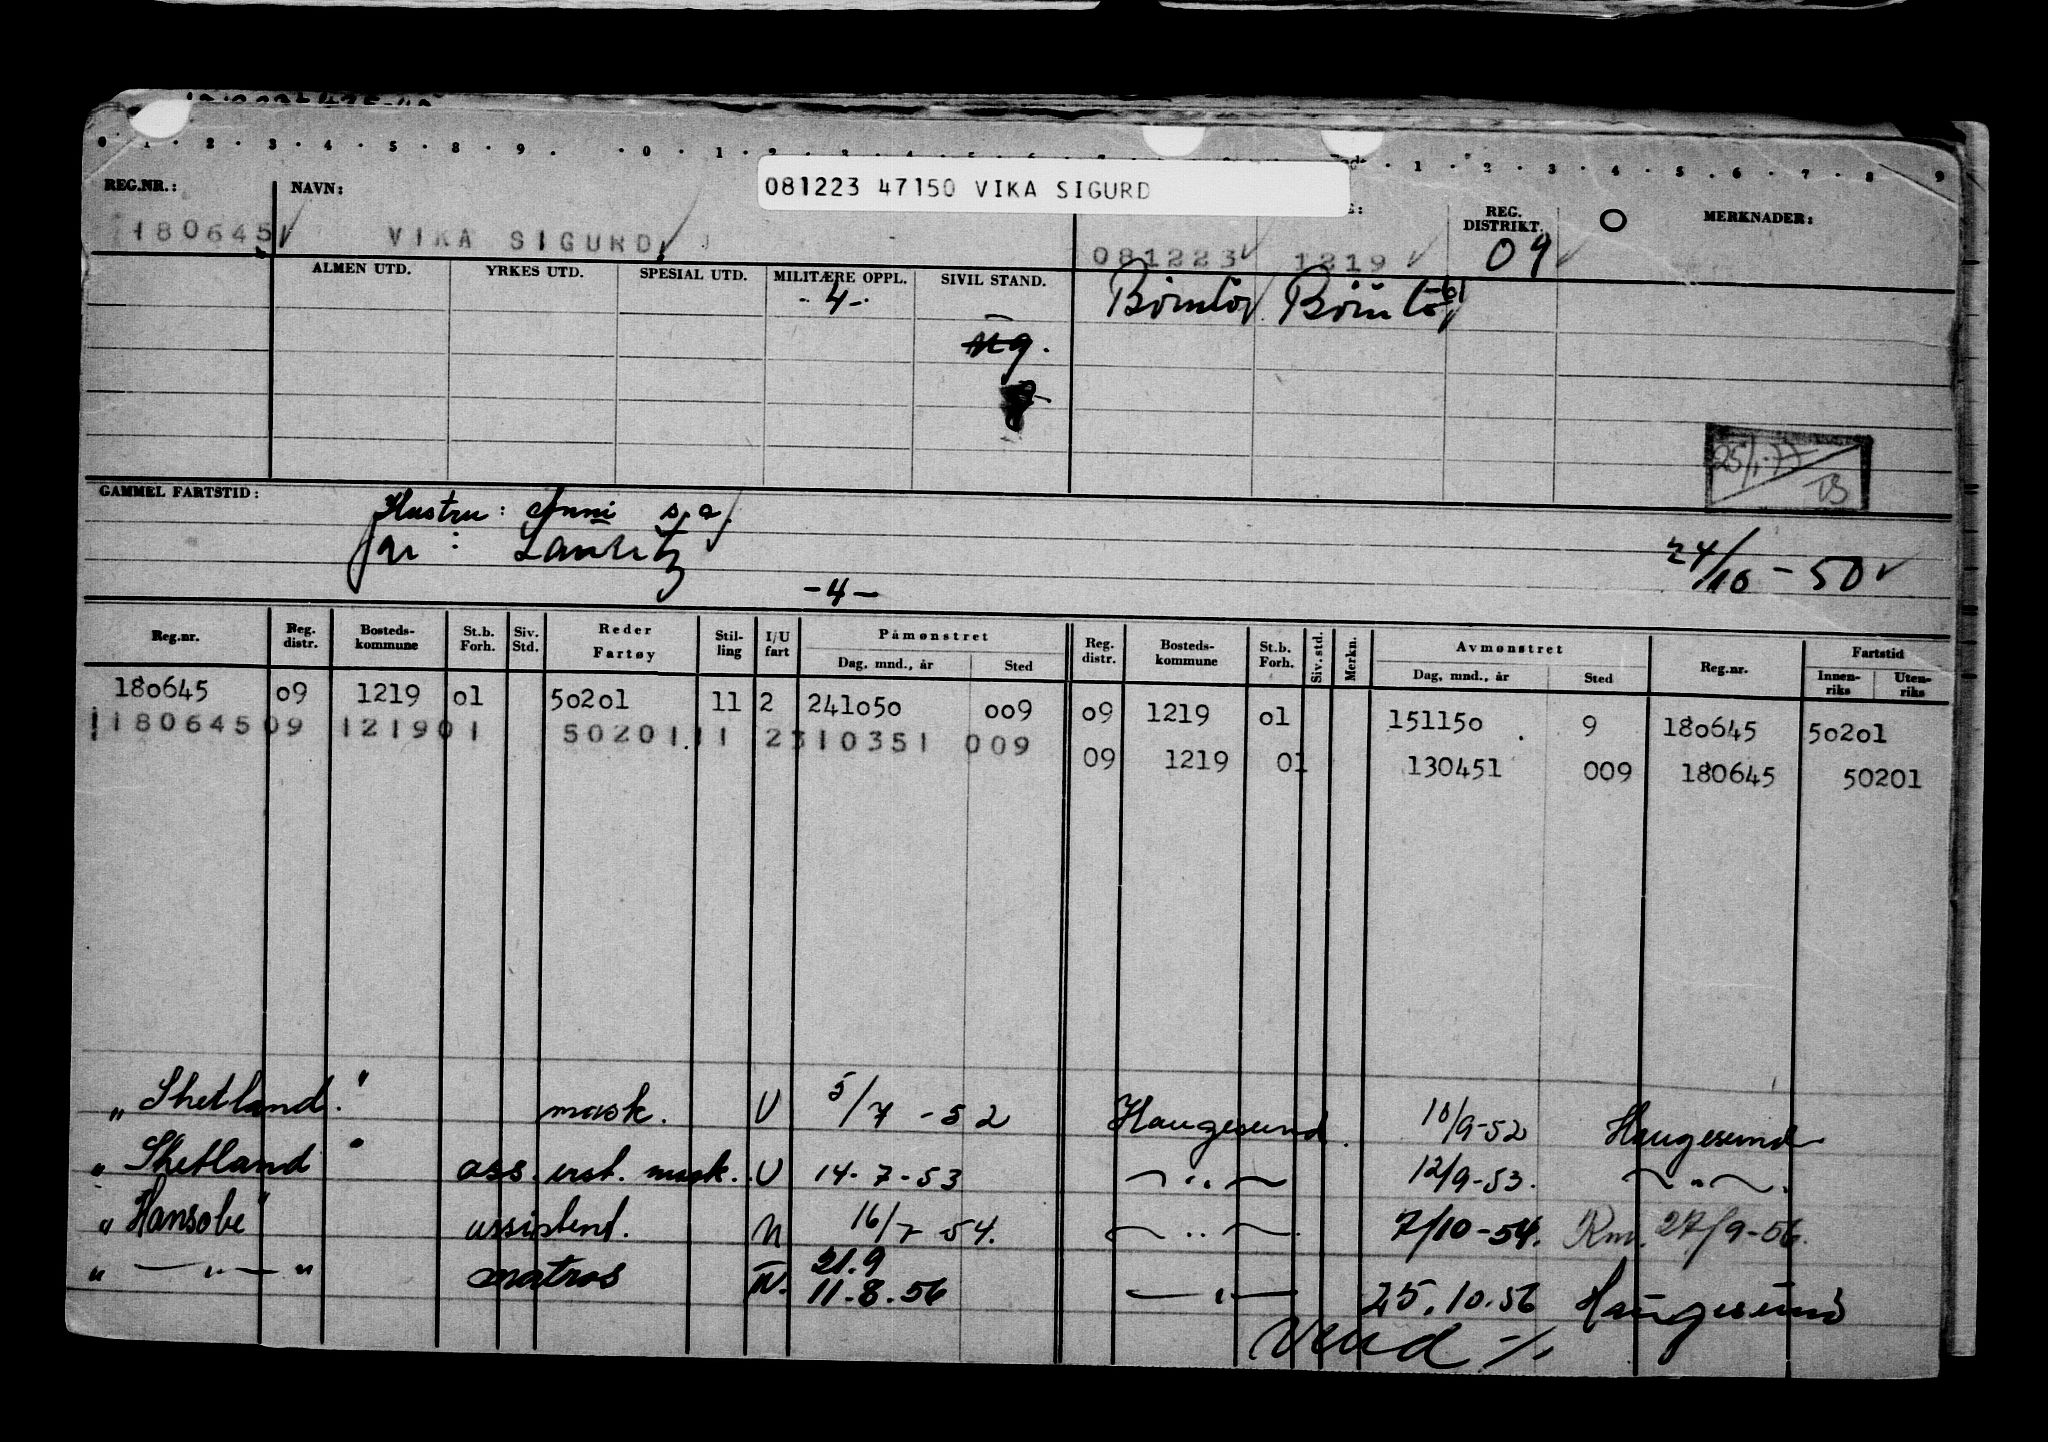 081223 47150 VIKA SIGURD
REG.NR.: NAVN: REG. DISTRIKT. O MERKNADER:
180645 VIKA SIGURD 081223 1219 09
ALMEN UTD. YRKES UTD. SPESIAL UTD. MILITÆRE OPPL. SIVIL STAND.
-4-. Bömlo Bömlo
ug.
25/1-77
GAMMEL FARTSTID:
Hustru: Anni s.a.
Far: Lauritz
24/10-50
-4-
Reg.nr. Reg. distr. Bosteds-kommune St.b. Forh. Siv. Std. Reder Fartøy Stil-ling I/U fart Påmønstret Dag, mnd., år Sted Reg. distr. Bosteds-kommune St.b. Forh. Siv. std. Merkn. Avmønstret Dag, mnd., år Sted Reg.nr. Fartstid Innen-riks Uten-riks
180645 09 1219 01 50201 11 2 241050 009 09 1219 01 151150 9 180645 50201
180645 09 1219 01 50201 11 2 310351 009
09 1219 01 130451 009 180645 50201
"Shetland." mask. U 5/7-52 Haugesund. 10/9-52 Haugesund
"Shetland" ass. inst. mask. U 14-7-53 —"— 12/9-53. —"—.
"Hansobe" assistent. U 16/7 54. —"— 7/10-54. Rm. 27/9-56.
" —"— " matros N. 21.9 11.8.56 —"— 25.10.56 Haugesund
Vend ./.